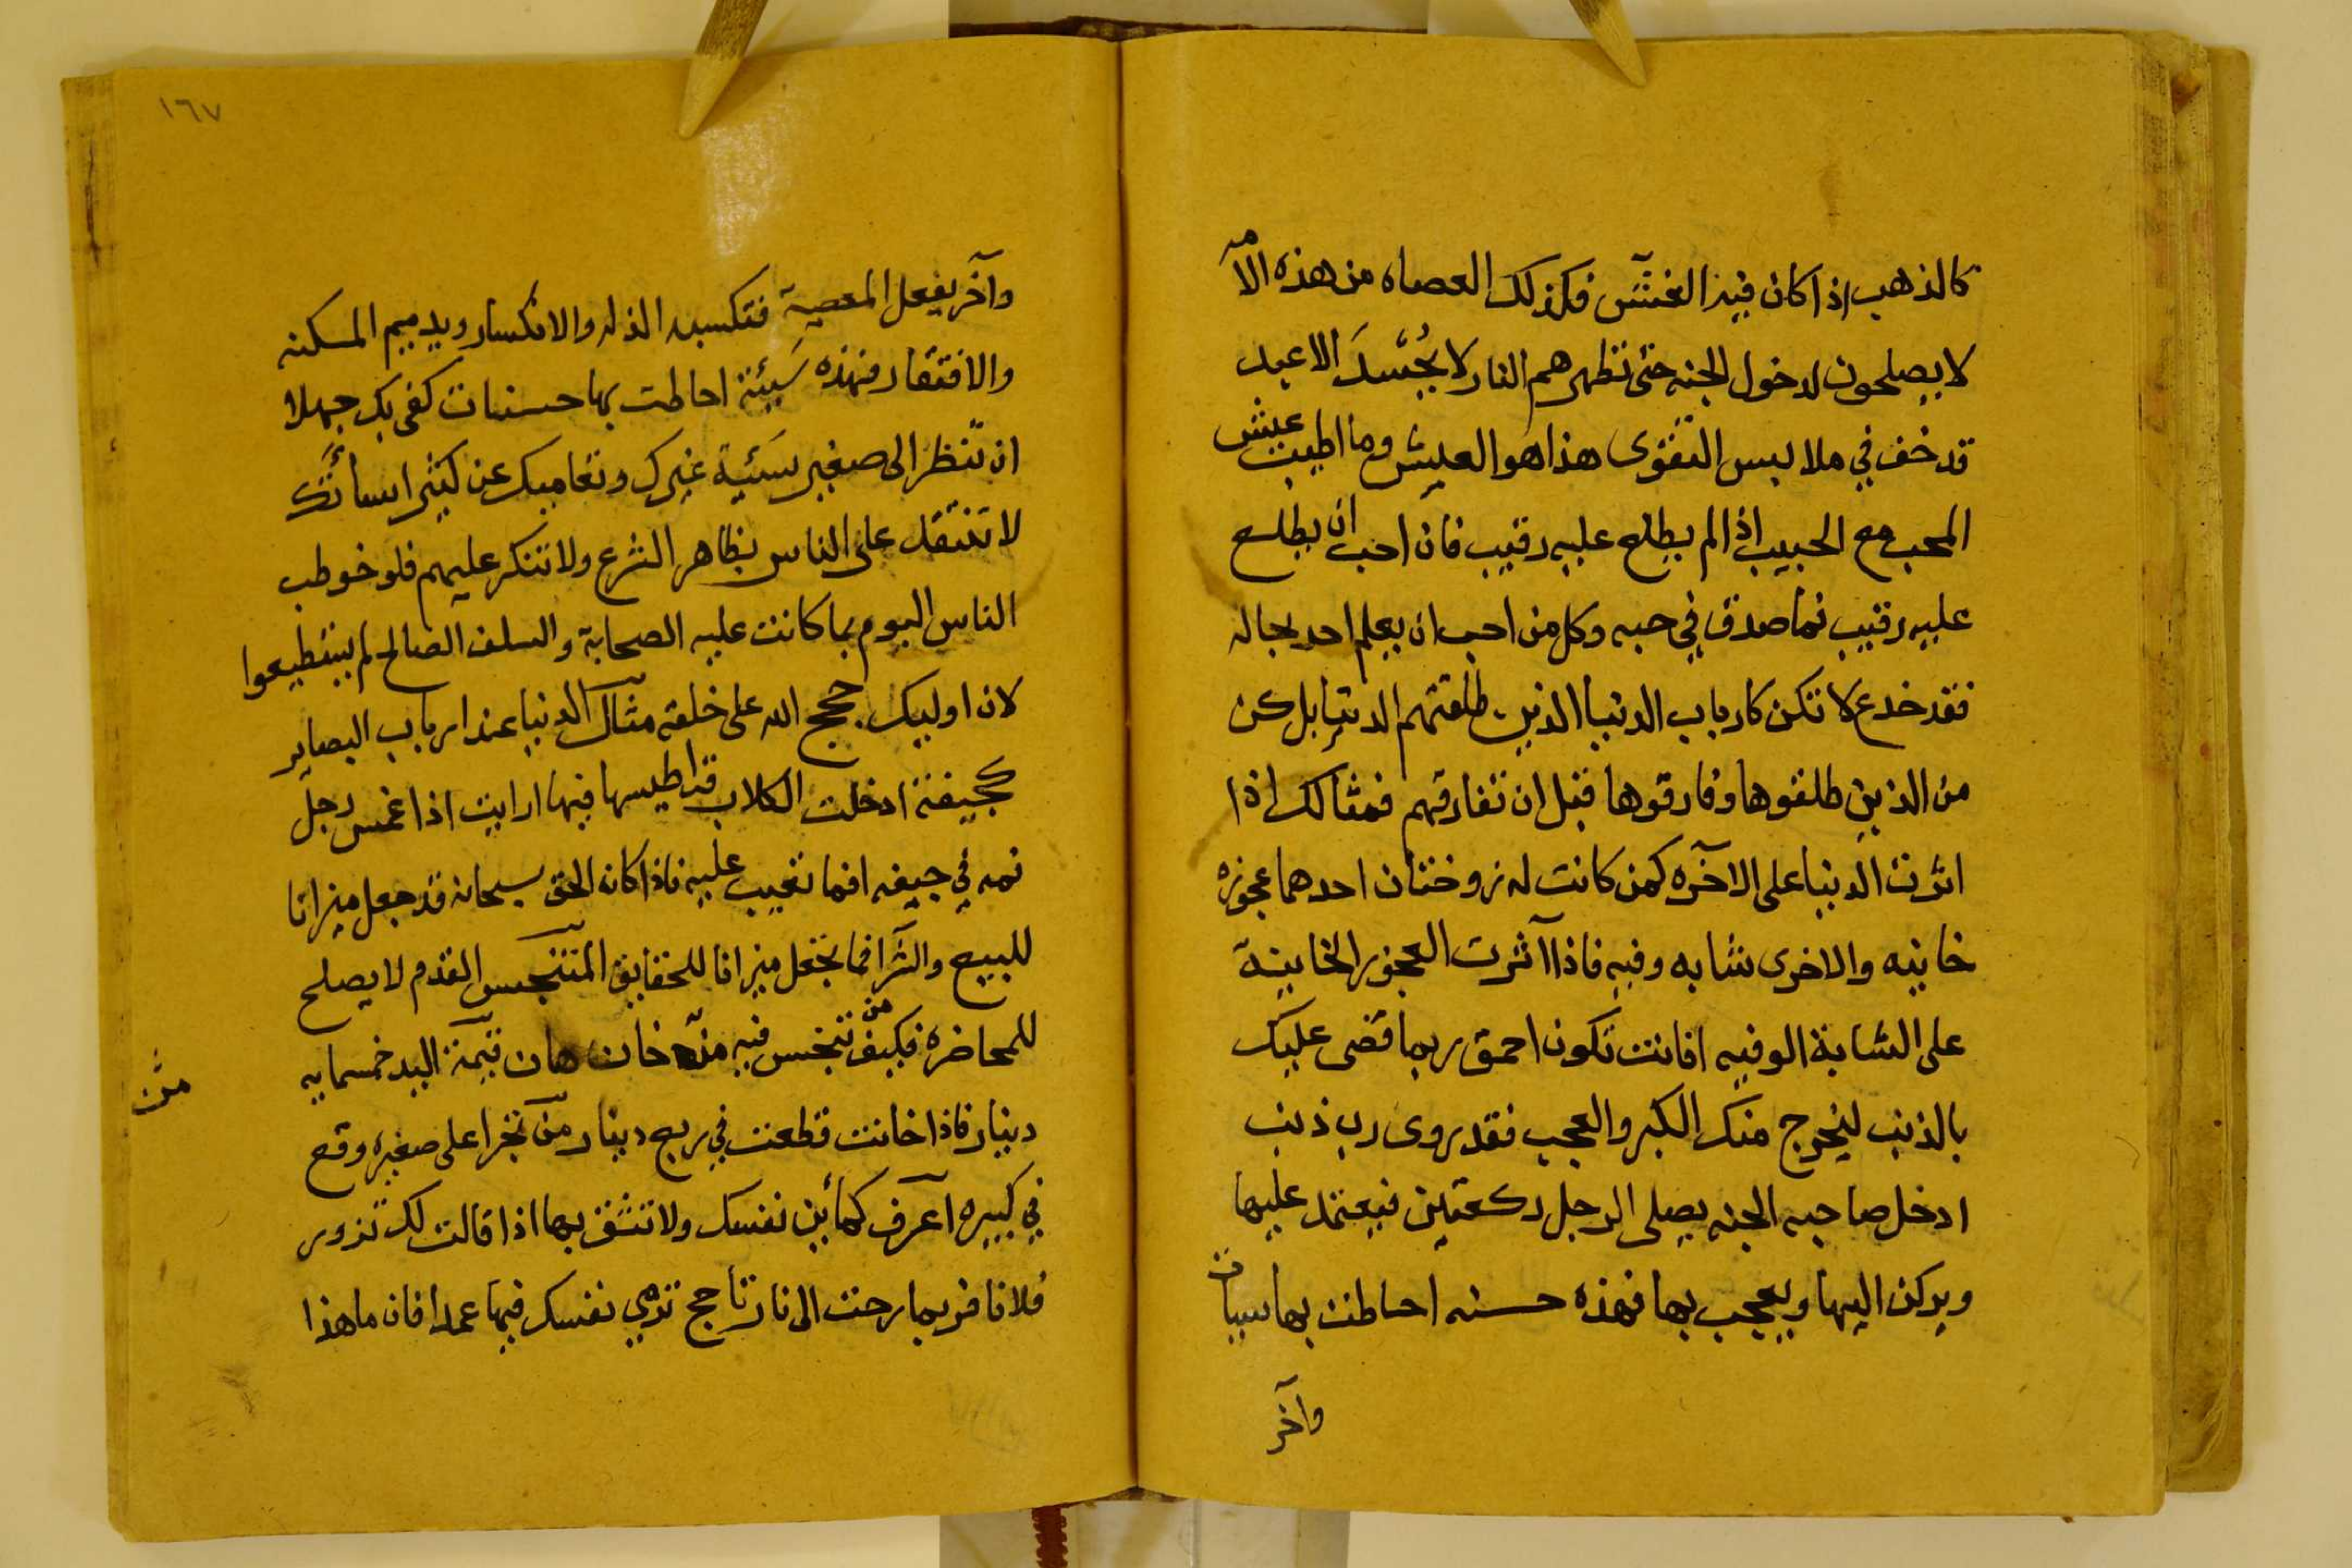 كالذهب اذا كان فيه الغش فكذلك العصاه من هذه الامه
لا يصلحون لدخول الجنه حتى تطهرهم النار لا يحسد الا عبد
قد خف في ملابس التقوى هذا هو العيش وما اطيب عيش
المحب مع الحبيب اذا لم يطلع عليه رقيب فان احب ان يطلع
عليه رقيب فما صدق في حبه وكل من احب ان يعلم احد بحاله
فقد خدع لا تكن كارباب الدنيا الذين طلقتهم الدنيا بل كن
من الذين طلقوها وفارقوها قبل ان تفارقهم فمثالك اذا
اثرت الدنيا على الاخره كمن كانت له زوجتان احدهما عجوزه
خاينه والاخرى شابه وفيه فاذا آثرت العجوز الخاينة
على الشابة الوفيه افانت تكون احمق ربما قضى عليك
بالذنب ليخرج منك الكبر والعجب فقد روى رب ذنب
ادخل صاحبه الجنه يصلى الرجل ركعتين فيعتمد عليها
ويركن اليها ويعجب بها فهذه حسنه احاطت بها سييات
وآخر
١٦٧
وآخر يفعل المعصية فتكسبه الذله والانكسار ويديم المسكنه
والافتقار فهذه سيئة احاطت بها حسنات كفى بك جهلا
ان تنظر الى صغير سيئة غيرك وتعاميك عن كثير اساتك
لا تنتقل على الناس بظاهر الشرع ولا تنكر عليهم فلو خوطب
الناس اليوم بما كانت عليه الصحابة والسلف الصالح لم يستطيعوا
لان اوليك حجج الله على خلقه مثال الدنيا عند ارباب البصاير
كجيفة ادخلت الكلاب قراطيسها فيها ارايت اذا غمس رجل
فمه في جيفه افما تعيب عليه فاذا كان الحق سبحانه قد جعل ميزانا
للبيع والشرا فما تجعل ميزانا للحقايق المتنجس القدم لا يصلح
للمحاضره فكيف من تنجس فيه من خان هان قيمة اليد خمسمايه
دينار فاذا خانت قطعت في ربع دينار من تجرا على صغيره وقع
في كبيره اعرف كمائن نفسك ولا تثق بها اذا قالت لك تزور
فلانا فربما رحت الى نار تاجج ترمي نفسك فيها عمدا فان ما هذا
من